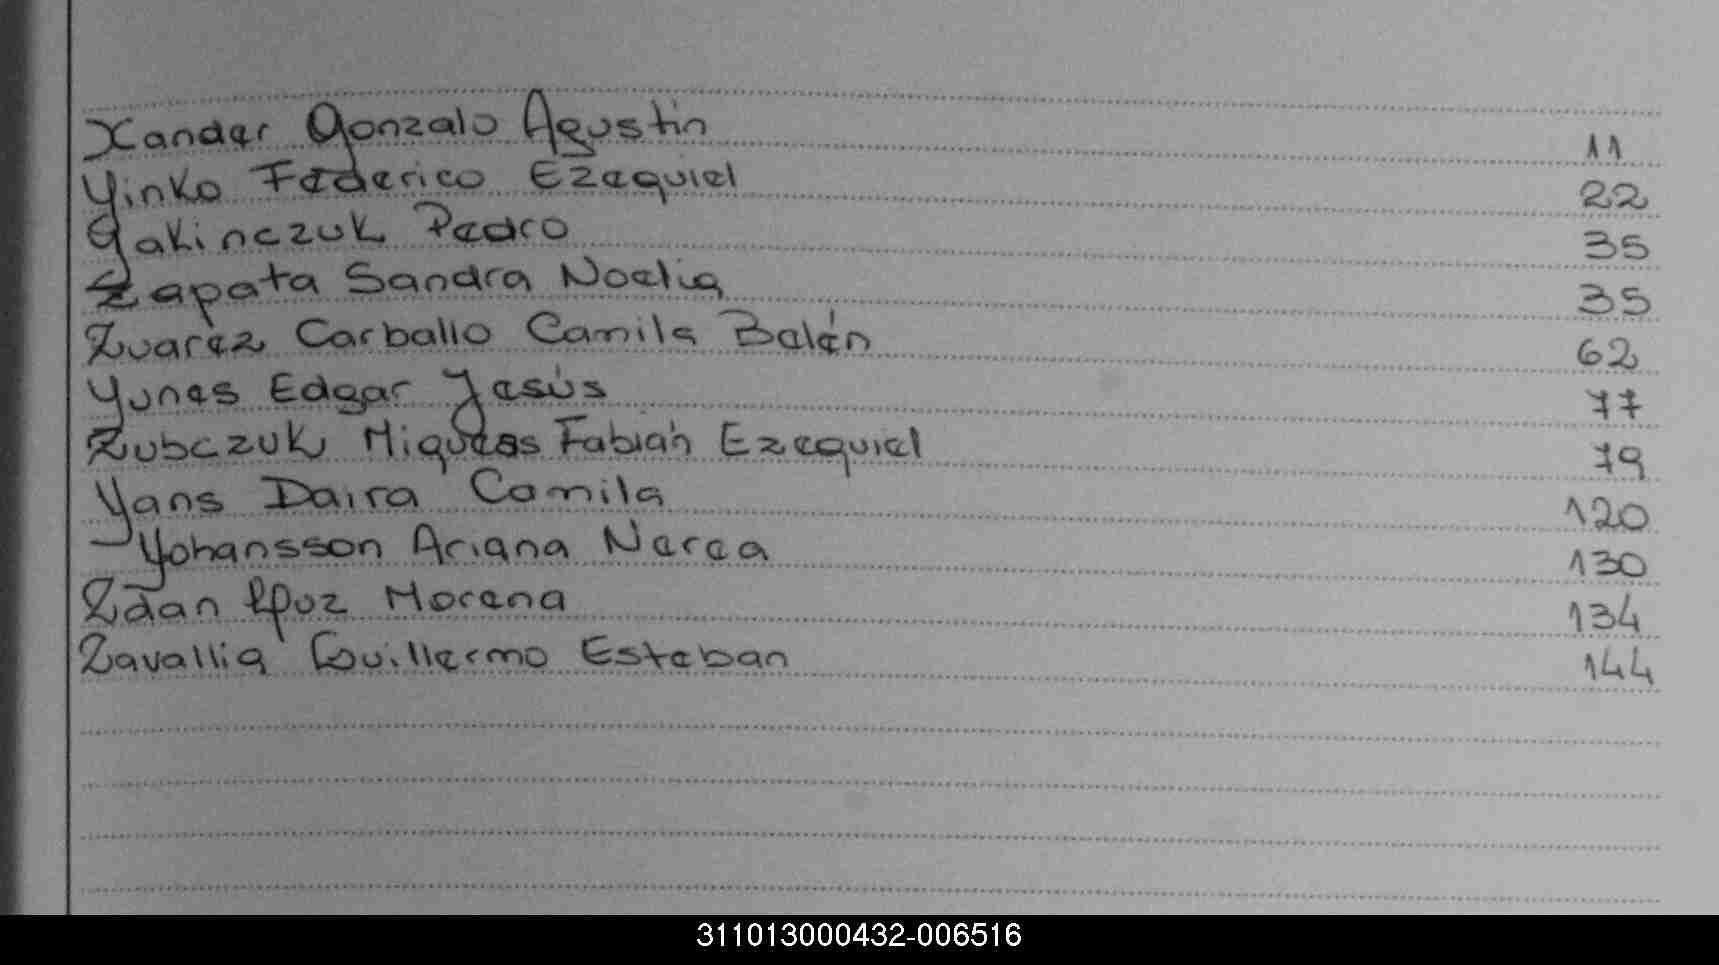 Xander Gonzalo Agustín 11
Yinko Federico Ezequiel 22
Yakinczuk Pedro 35
Zapata Sandra Noelia 35
Zuarez Carballo Camila Belén 62
Yunes Edgar Jesús 77
Zubczuk Miqueas Fabián Ezequiel 79
Yans Daira Camila 120
Yohansson Ariana Nerea 130
Zdan Morena 134
Zavallia Guillermo Esteban 144
311013000432-006516